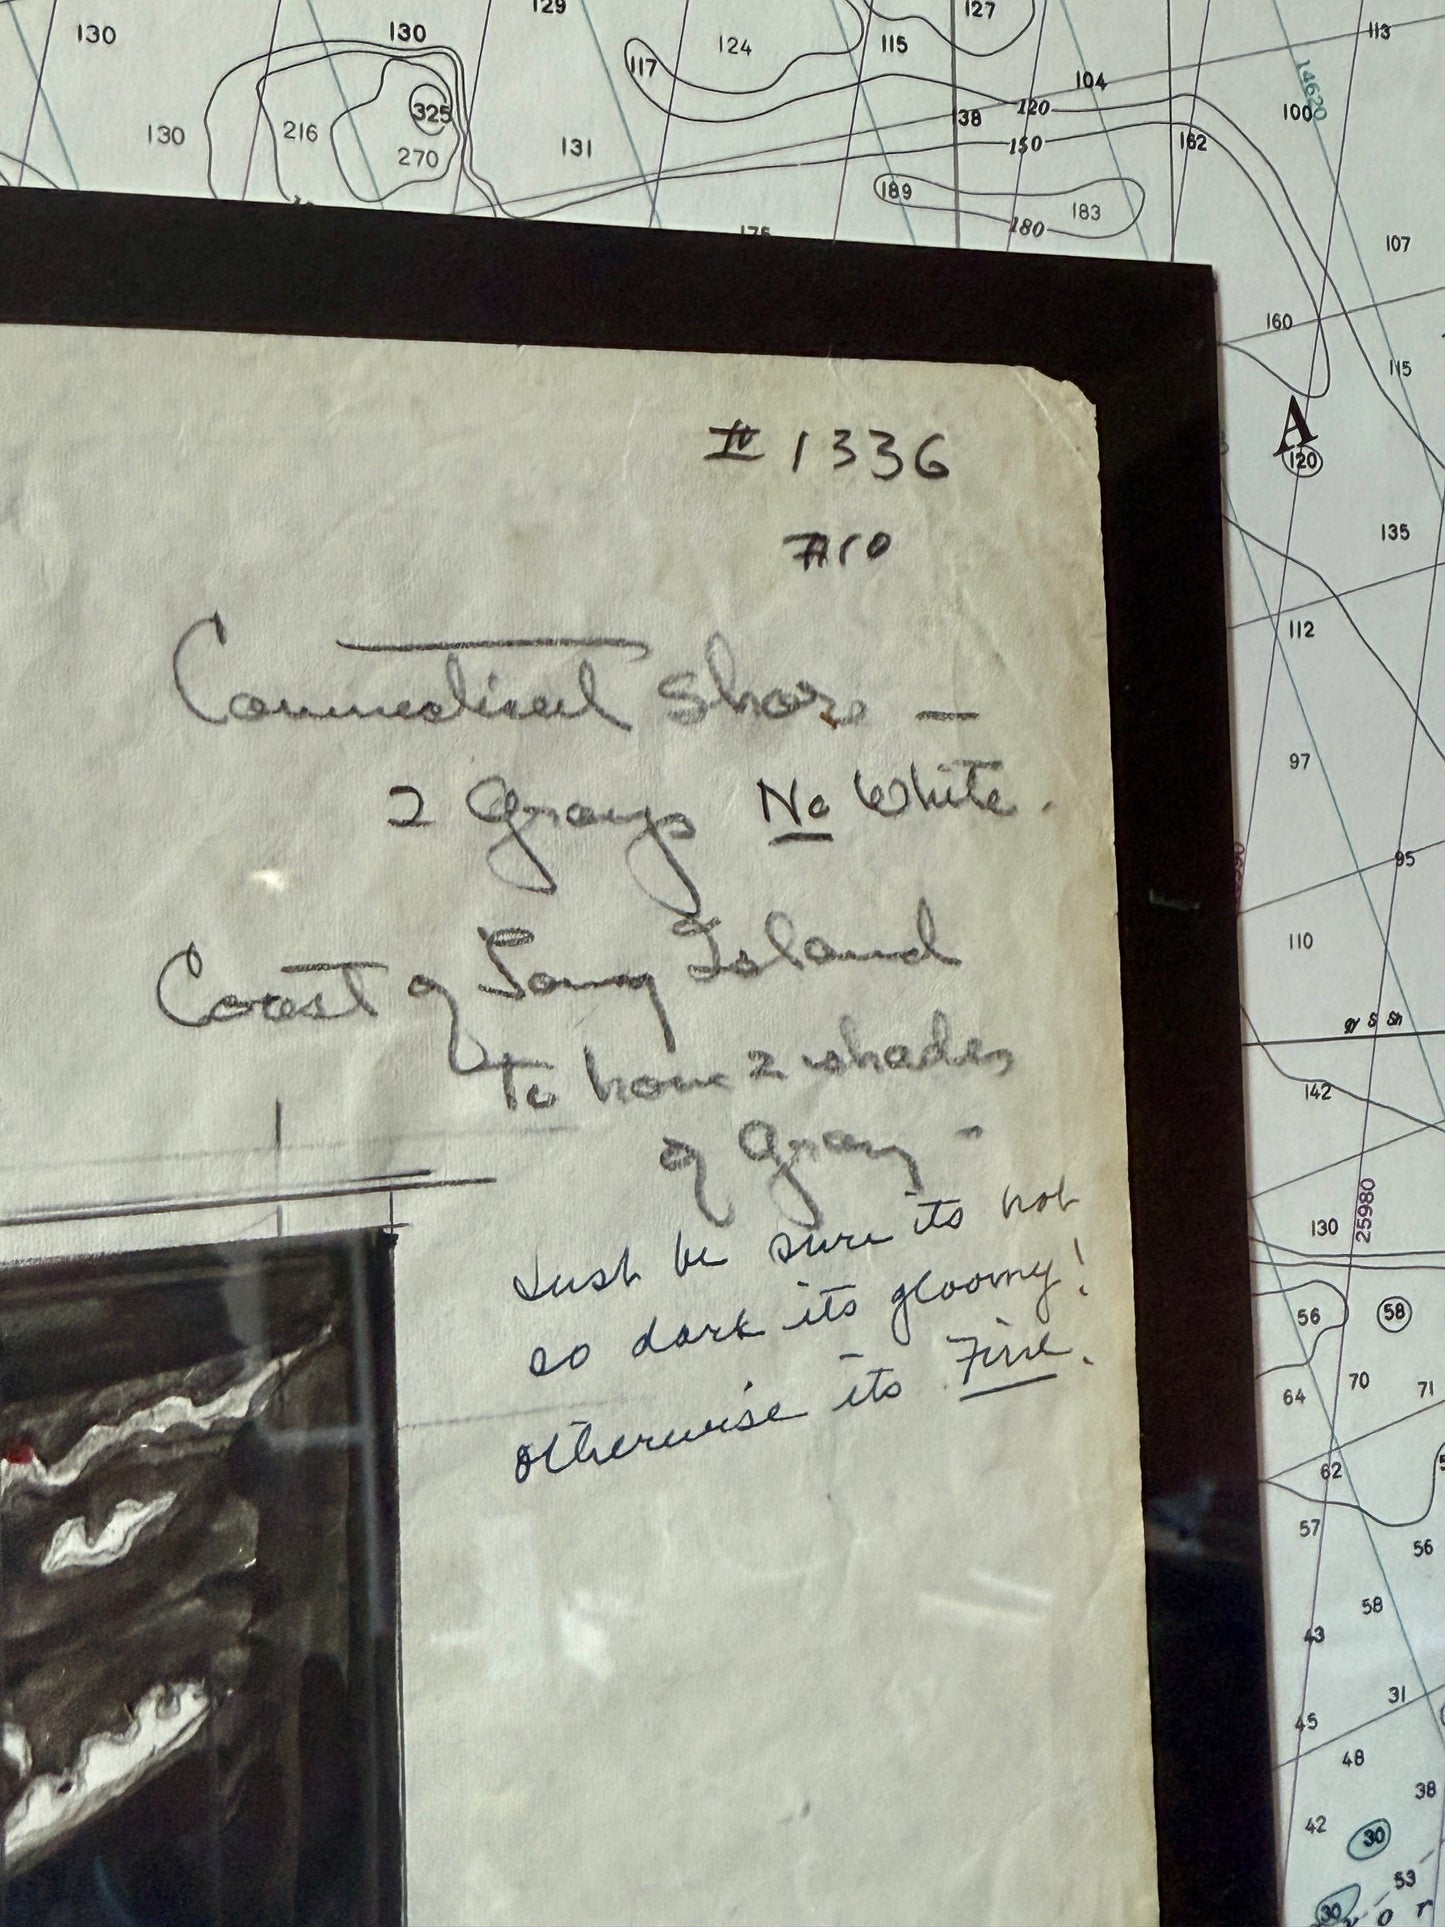 129
127
130
130
124
115
113
117
104
14620
325
120
100
38
130
216
131
150
162
270
189
183
180
107
175
160
115
A
120
# 1336
#10
135
Connecticut Shore —
112
2 Grays No White.
97
95
Coast of Long Island
110
to have 2 shades
142
of Gray -
25980
130
Just be sure its not
so dark its gloomy!
otherwise its Fine.
56
58
70
71
64
62
57
56
58
43
31
45
48
38
42
30
53
30